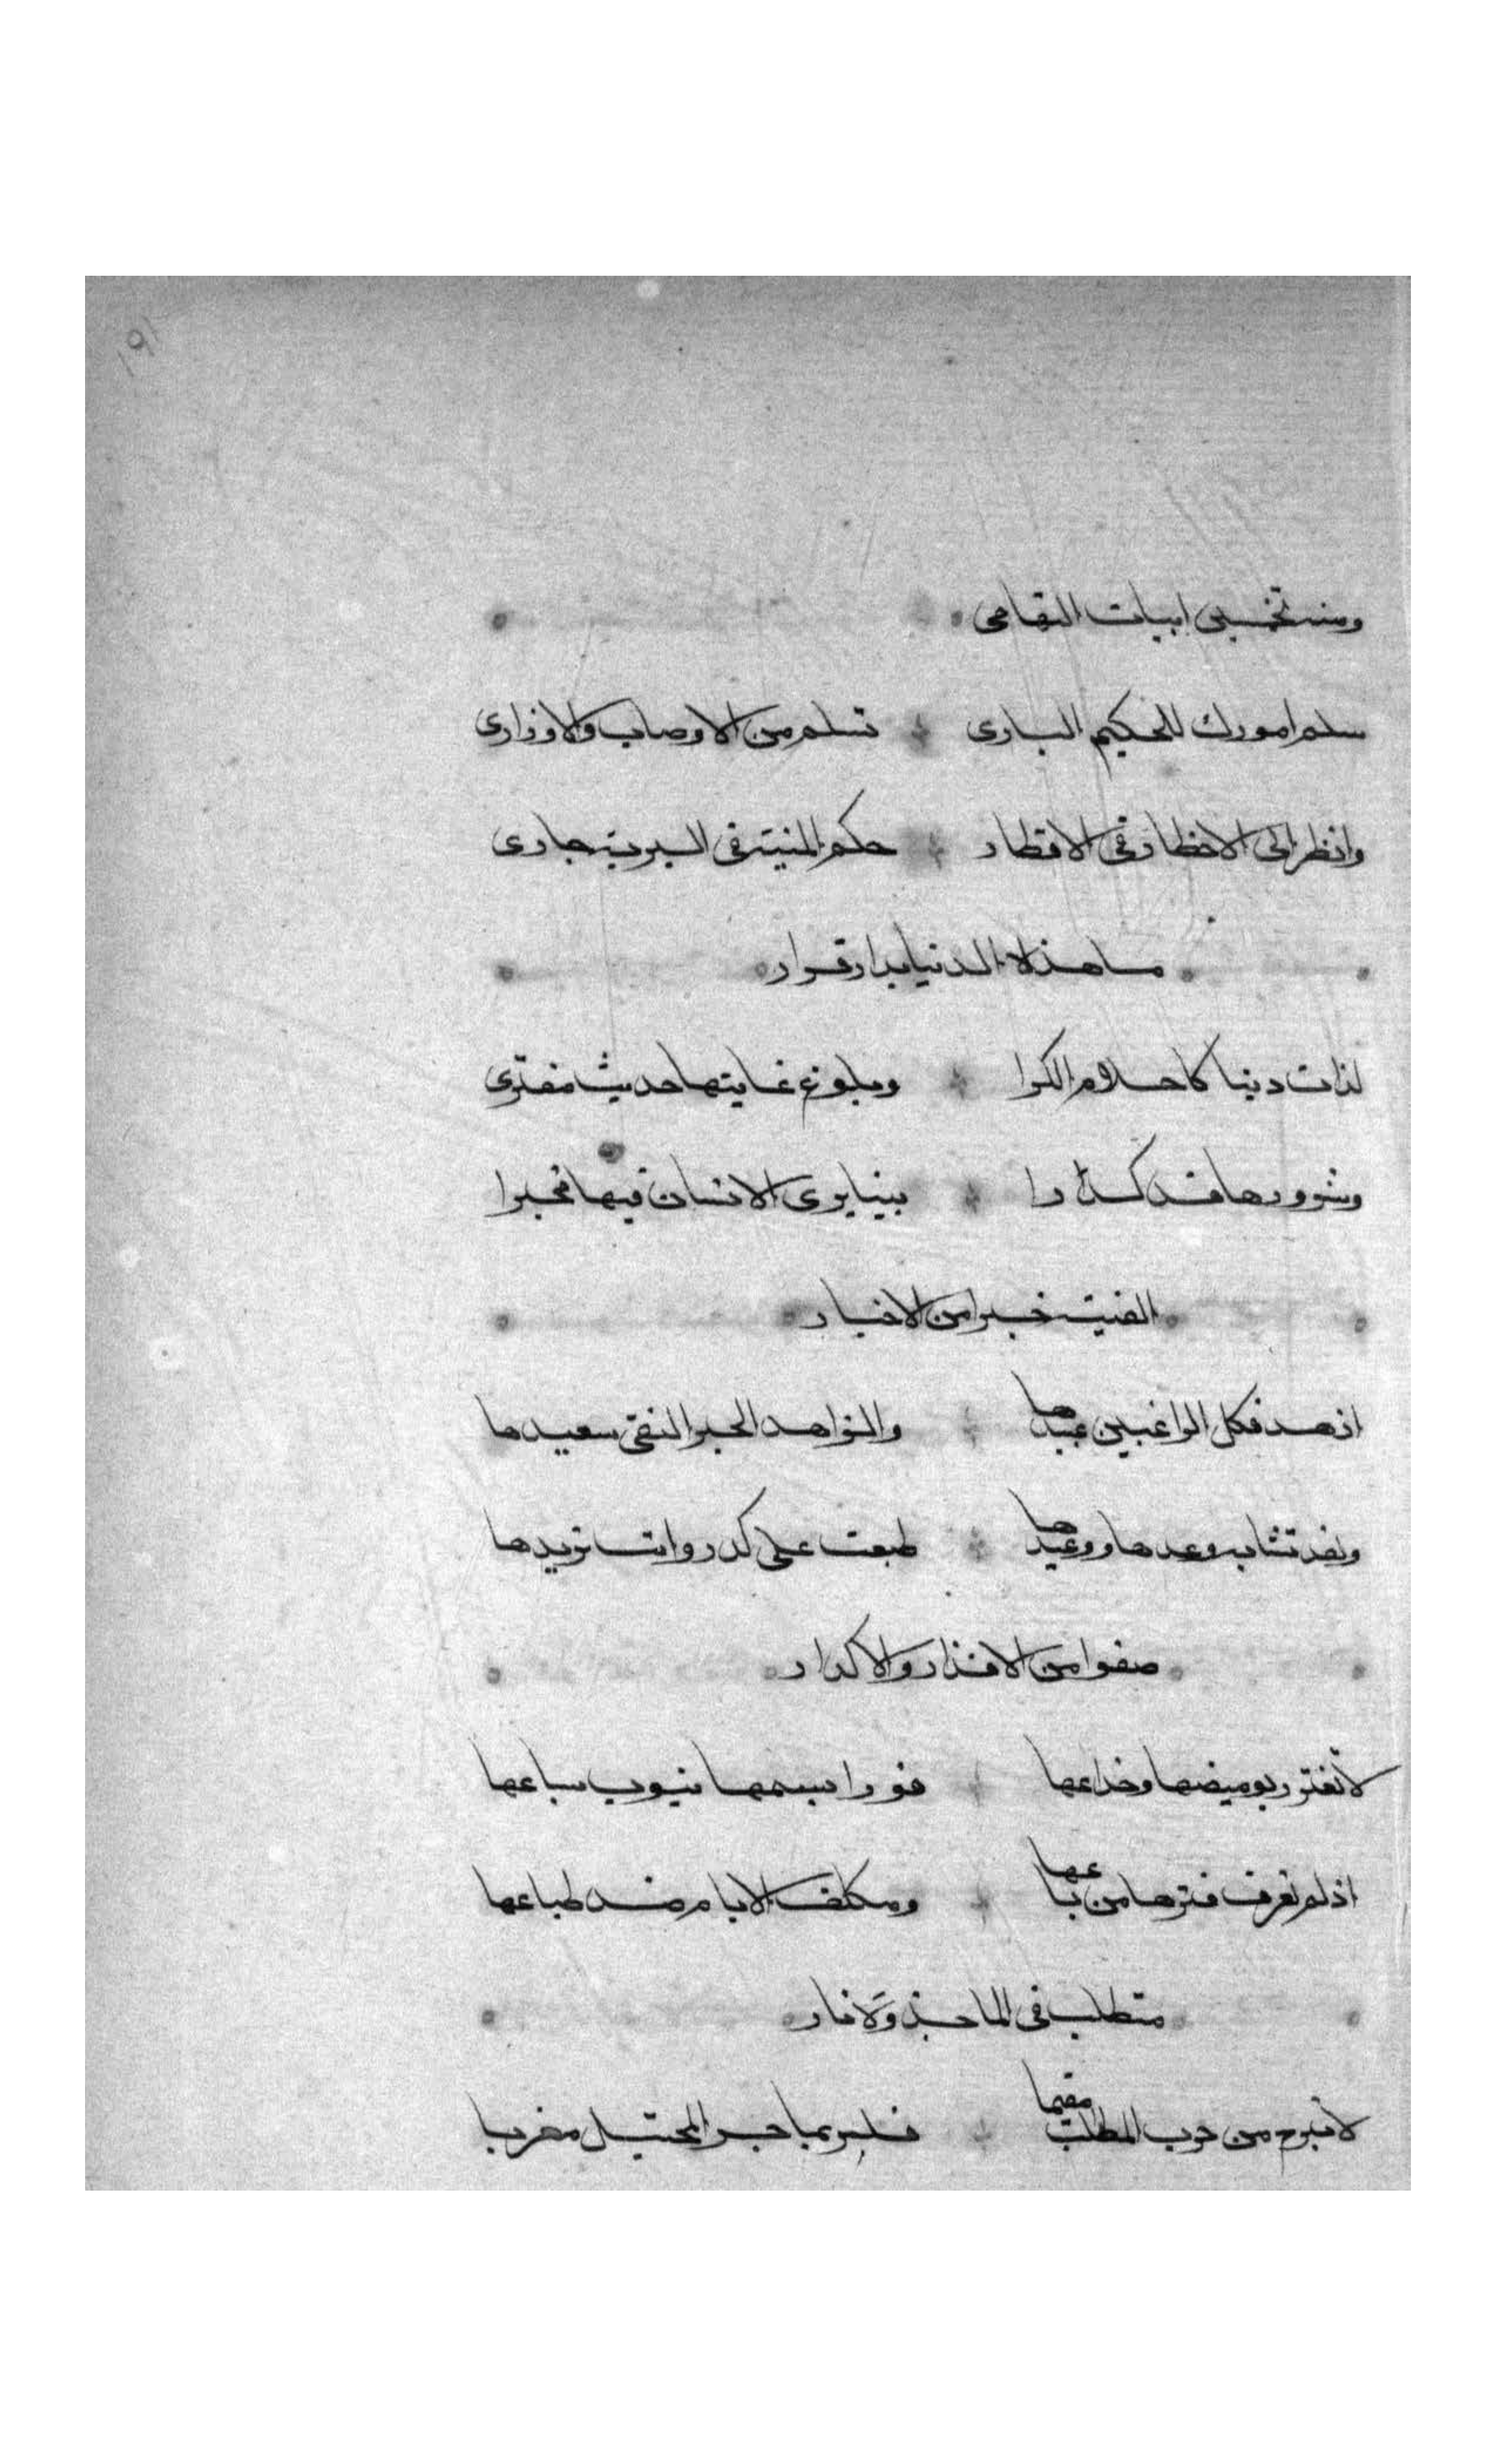 ١٩١
ومنه تخميس ابيات التهامي
سلم امورك للحكيم الباري * تسلم من الاوصاب والاوزاري
وانظر الى الاخطار في الاقطار * حكم المنية في البرية جاري
ما هذه الدنيا بدار قرار
لذات دينا كاحلام الكرا * وبلوغ غايتها حديث مفتري
وشرورها قد كدرا * بينا يرى الانسان فيها مخبرا
الفيته خبرا من الاخبار
ازهد فكل الراغبين عبيدها * والزاهد الحبر التقي سعيدها
ولقد تشابه وعدها ووعيدها * طبعت على كدر وانت تريدها
صفوا من الاقذار والاكدار
لا تغترر بوميضها وخداعها * فورا سمها نيوب سباعها
اذ لم تعرف فترها من باعها * ومكلف الايام ضد طباعها
متطلب في الما جذوة نار
لا تبرح من دوب المطالب مقيما * فلربما جر المخيل مغربا